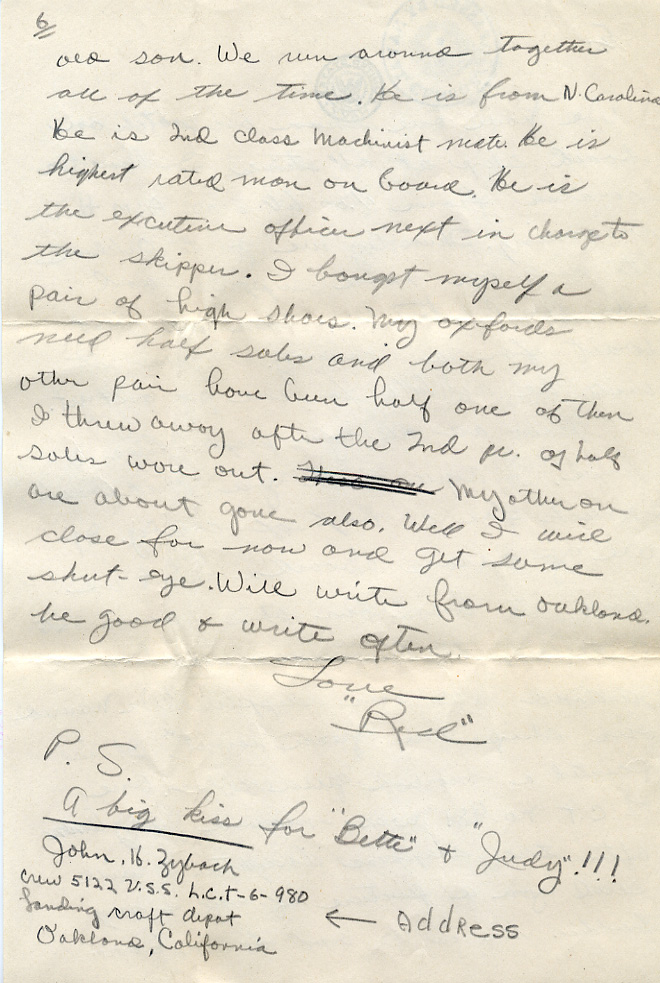 6/
old son. We run around together
all of the time. He is from N. Carolina
He is 2nd class Machinist mate. He is
highest rated man on board. He is
the excutive officer next in charge to
the skipper. I bougt myself a
pair of high shoes. My oxfords
need half soles and both my
other pair have been half one of them
I threw away after the 2nd pr. of half
soles wore out. My other on
are about gone also. Well I will
close for now and get some
shut-eye. Will write from Oakland.
be good & write often.
Love
"Red"
P. S.
A big kiss for "Bette" & "Judy".!!!
John, H. Zybach
crew 5122 U.S.S. L.C.T-6-980
Landing craft depot
Oakland, California
← Address